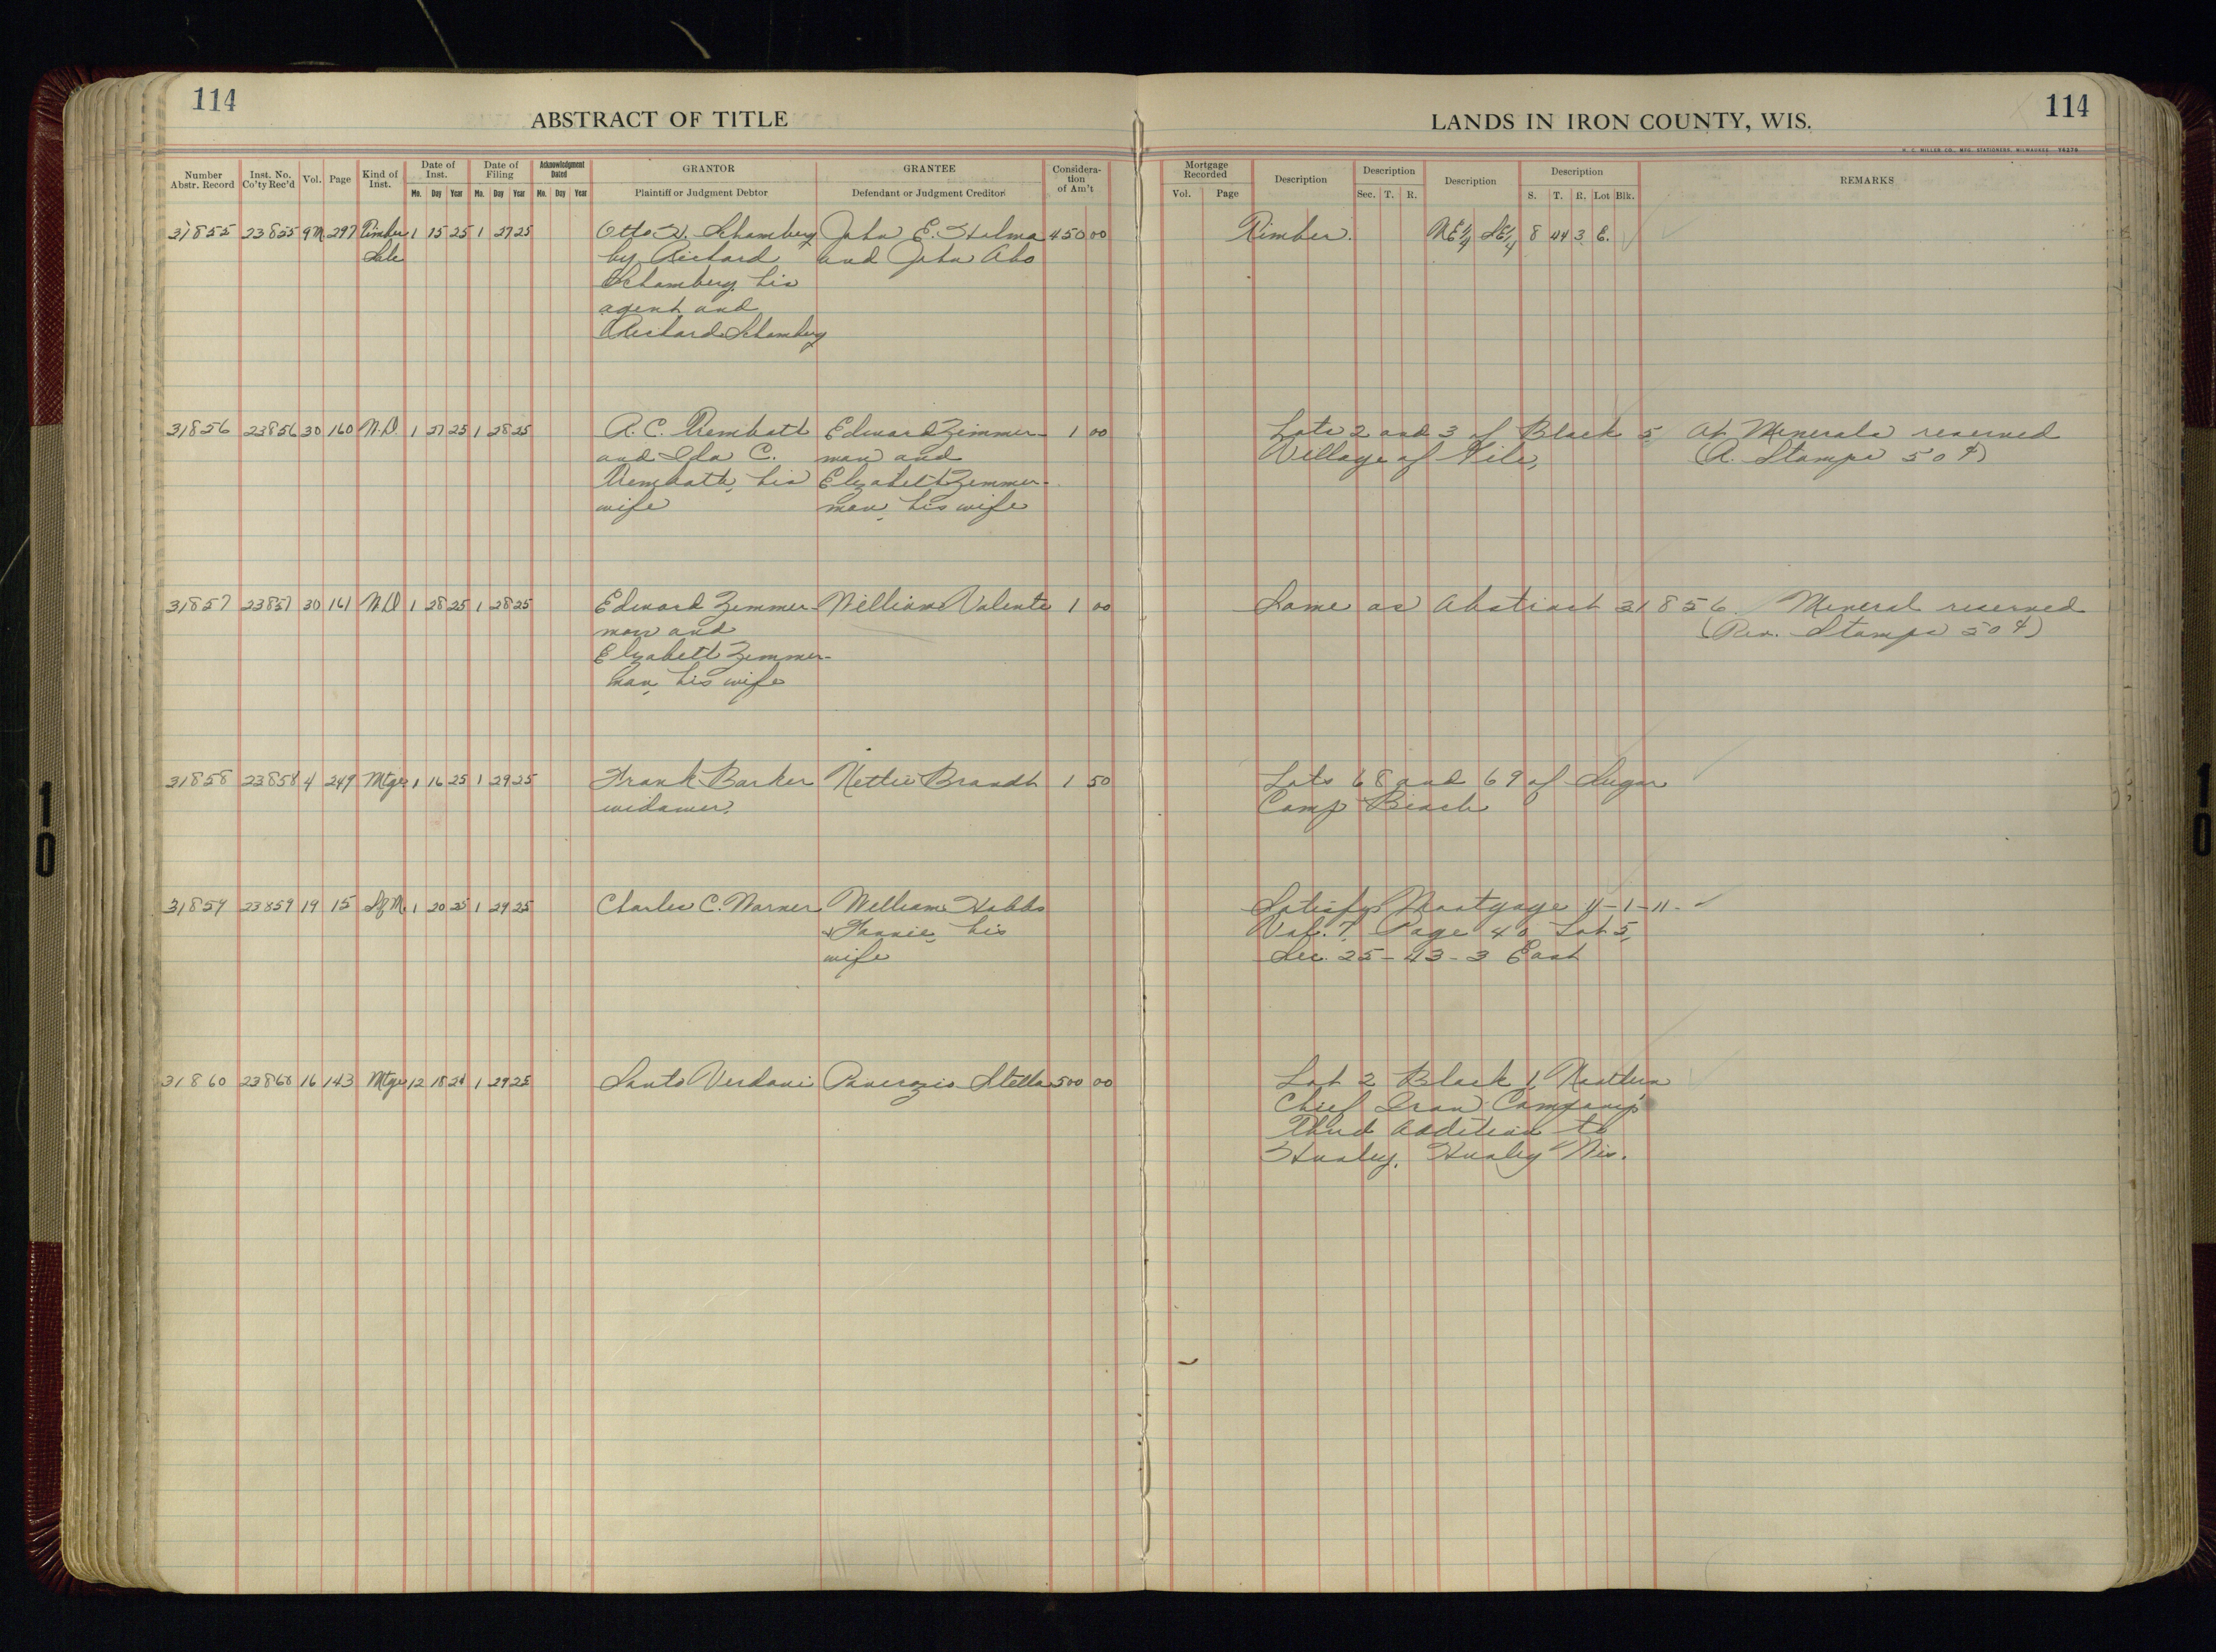 114
ABSTRACT OF TITLE
LANDS IN IRON COUNTY, WIS.
114
H. C. MILLER CO., MFG. STATIONERS, MILWAUKEE
Number Abstr. Record | Inst. No. Co'ty Rec'd | Vol. | Page | Kind of Inst. | Date of Inst. Mo. Day Year | Date of Filing Mo. Day Year | Acknowledgment Dated Mo. Day Year | GRANTOR Plaintiff or Judgment Debtor | GRANTEE Defendant or Judgment Creditor | Consideration of Am't | Mortgage Recorded Vol. Page | Description | Description Sec. T. R. | Description | Description S. T. R. Lot Blk. | REMARKS
31855 23855 9M 297 Timber 1 15 25 1 27 25 Otto H. Schomberg John E. Stalma 450 00 Timber. NE1/4 SE1/4 8 44 3 E.
Sale by Richard and John Aho
Schomberg his
agent and
Richard Schomberg
31856 23856 30 160 W.D. 1 27 25 1 28 25 A. C. Edward Zimmer- 1 00 Lots 2 and 3 of Block 5 Minerals reserved
and Ida C. man and Village of Gile, (R. Stamps 50¢)
his Elizabeth Zimmer-
wife man, his wife
31857 23857 30 161 W.D 1 28 25 1 28 25 Edward Zimmer- William Valenti 1 00 Same as Abstract 31856. Mineral reserved
man and (Rev. Stamps 50¢)
Elizabeth Zimmer-
man, his wife
31858 23858 4 249 Mtge 1 16 25 1 29 25 Frank Barker Nettie Brandt 1 50 Lots 68 and 69 of Sugar
widower. Camp Beach
31859 23859 19 15 Sf.M. 1 20 25 1 29 25 Charles C. Warner William Hobbs Satisfys Mortgage 11-1-11.
& Fannie, his Vol. 7, Page 40 Lot 5,
wife Sec. 25-43-3 East
31860 23860 16 143 Mtge 12 18 24 1 29 25 Santo Verdani Panerazio Stella 500 00 Lot 2 Block 1, Northern
Chief Iron Company's
Third Addition to
Hurley, Hurley Wis.
10
10